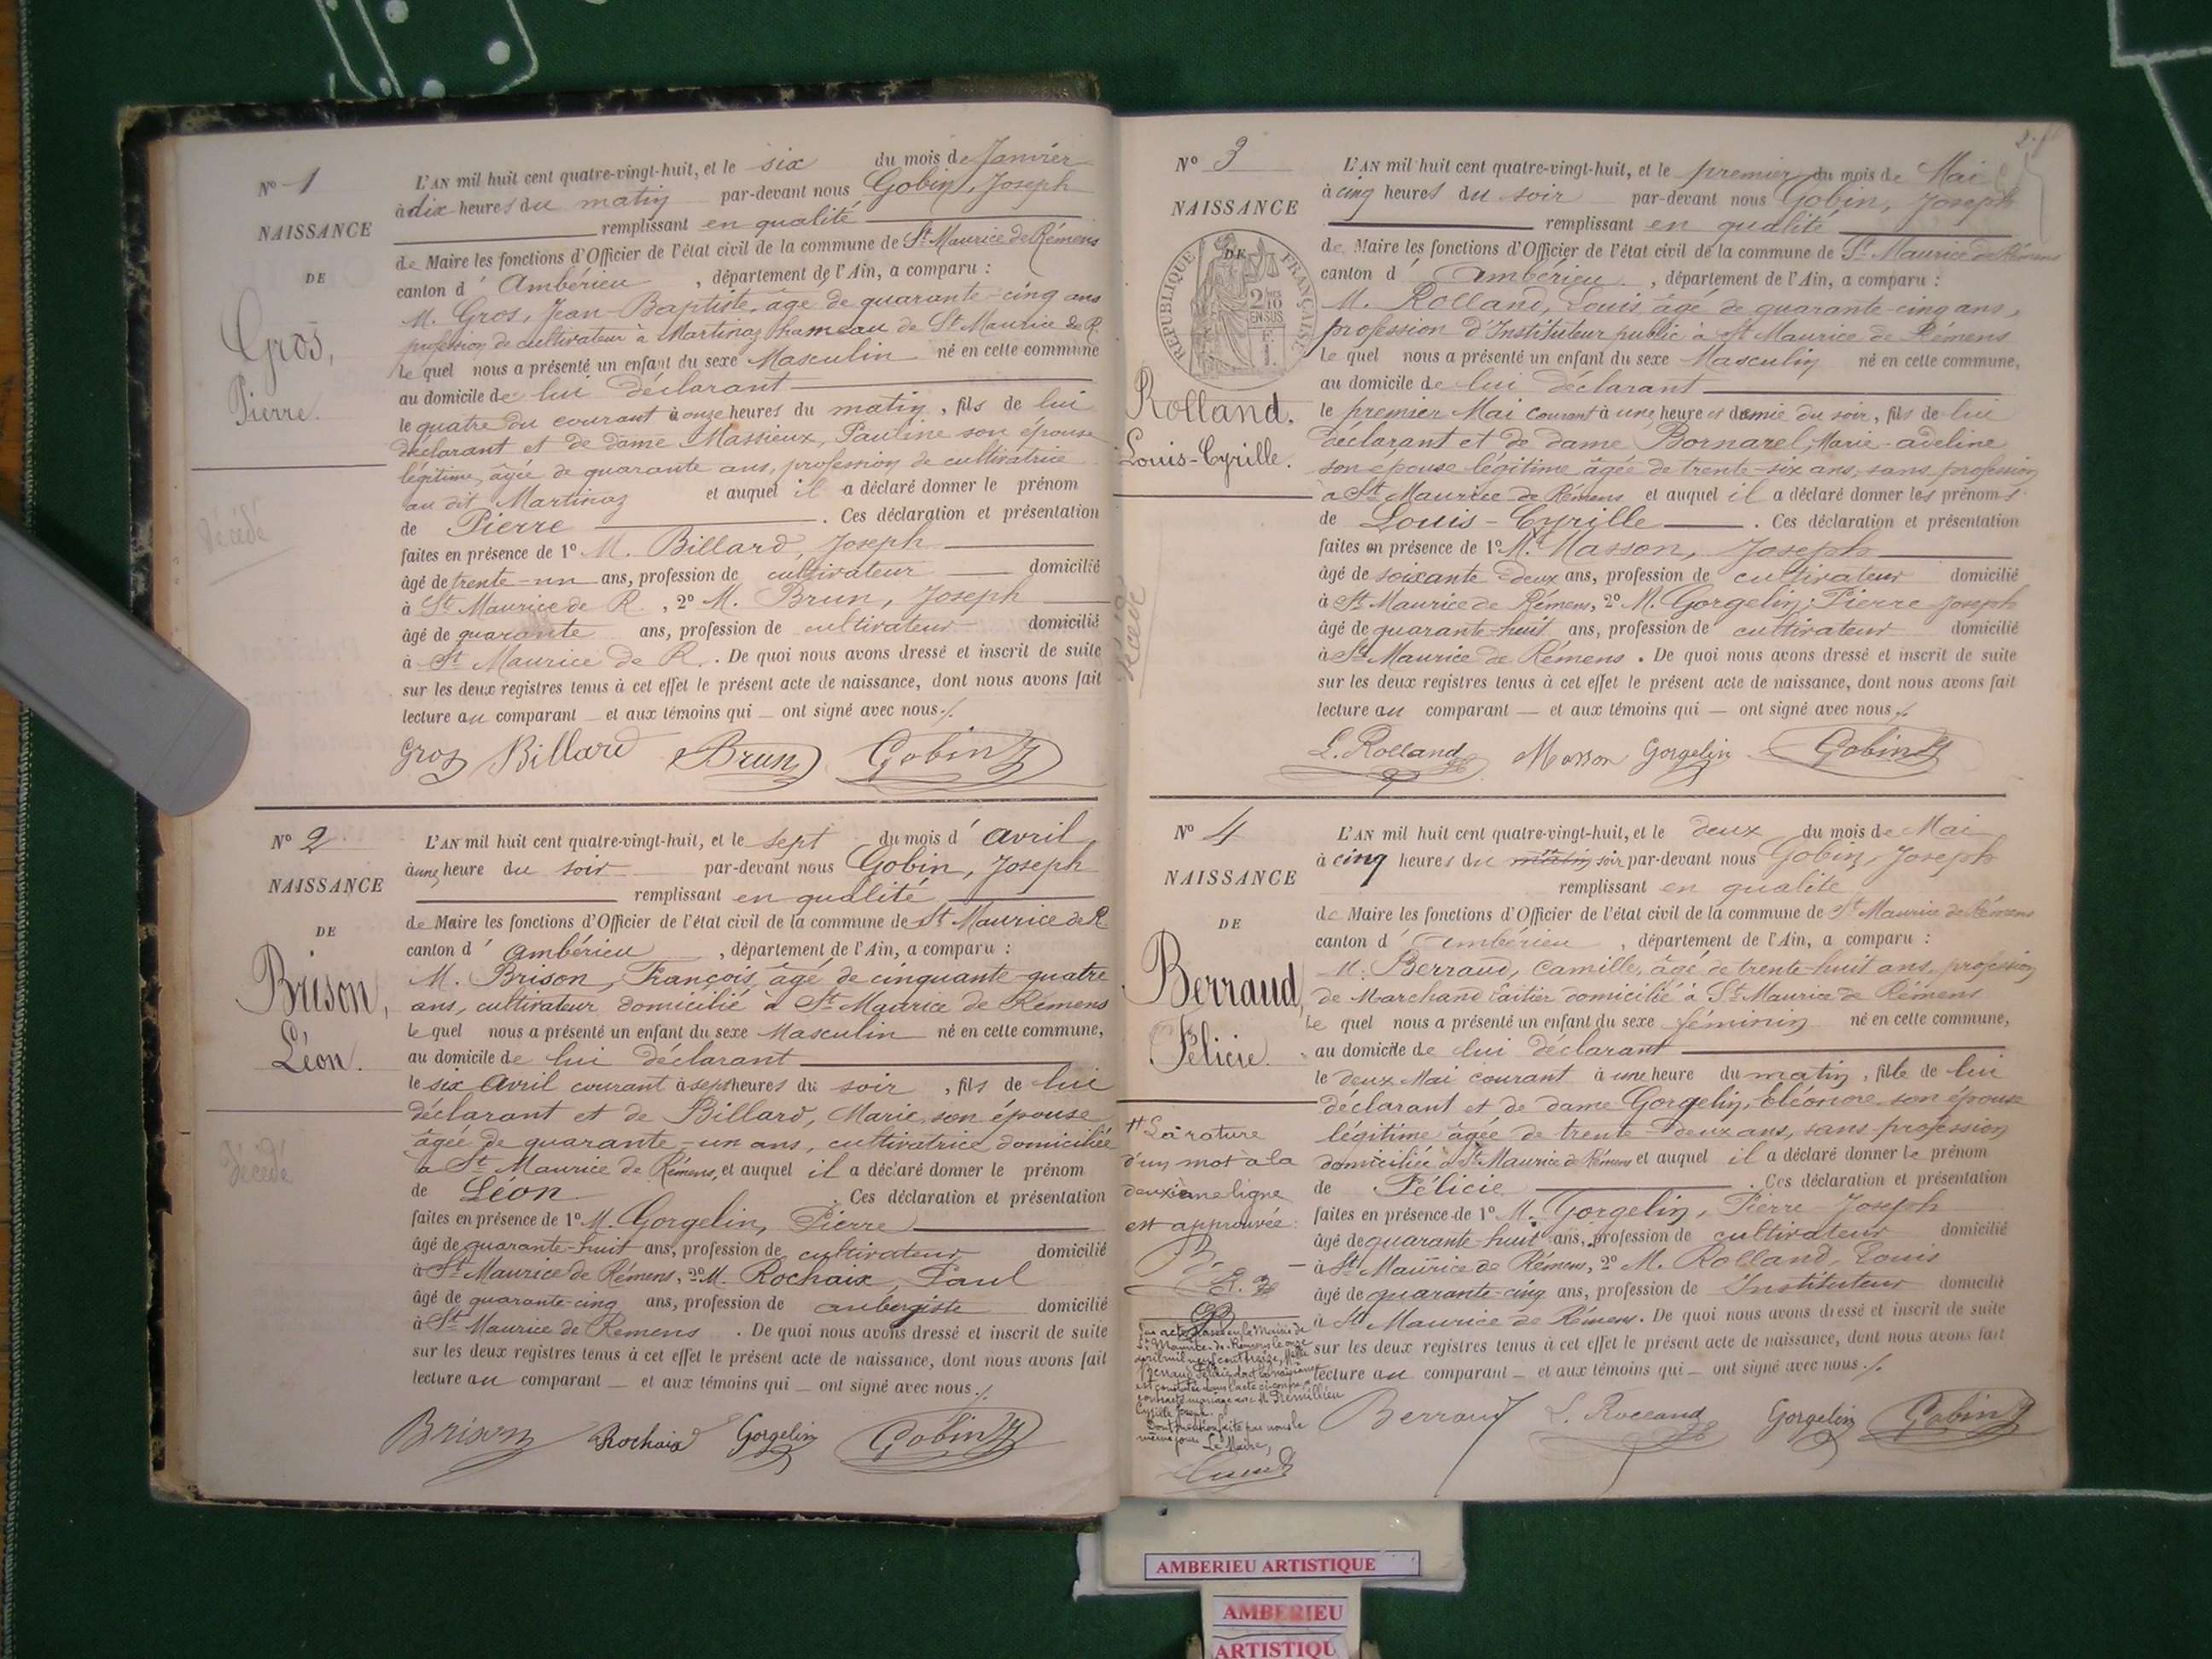 N° 1
NAISSANCE
DE
Gros,
Pierre.
Décédé
L'AN mil huit cent quatre-vingt-huit, et le six du mois de Janvier
à dix heures du matin par-devant nous Gobin, Joseph
remplissant en qualité
de Maire les fonctions d'Officier de l'état civil de la commune de St Maurice de Rémens
canton d' Ambérieu, département de l'Ain, a comparu :
M. Gros, Jean-Baptiste, âgé de quarante-cinq ans
profession de cultivateur à Martinaz hameau de St Maurice de R.
le quel nous a présenté un enfant du sexe Masculin né en cette commune
au domicile de lui déclarant
le quatre du courant à onze heures du matin, fils de lui
déclarant et de dame Massieux, Pauline son épouse
légitime, âgée de quarante ans, profession de cultivatrice
au dit Martinaz et auquel il a déclaré donner le prénom
de Pierre. Ces déclaration et présentation
faites en présence de 1° M. Billard, Joseph
âgé de trente-un ans, profession de cultivateur domicilié
à St Maurice de R., 2° M. Brun, Joseph
âgé de quarante ans, profession de cultivateur domicilié
à St Maurice de R.. De quoi nous avons dressé et inscrit de suite
sur les deux registres tenus à cet effet le présent acte de naissance, dont nous avons fait
lecture au comparant _ et aux témoins qui _ ont signé avec nous ./.
Gros Billard Brun Gobin J
N° 2
NAISSANCE
DE
Brison,
Léon.
Décédé
L'AN mil huit cent quatre-vingt-huit, et le sept du mois d' avril
à une heure du soir par-devant nous Gobin, Joseph
remplissant en qualité
de Maire les fonctions d'Officier de l'état civil de la commune de St Maurice de R
canton d' ambérieu, département de l'Ain, a comparu :
M. Brison, François, âgé de cinquante-quatre
ans, cultivateur domicilié à St Maurice de Rémens
le quel nous a présenté un enfant du sexe Masculin né en cette commune,
au domicile de lui déclarant
le six Avril courant à sept heures du soir, fils de lui
déclarant et de Billard, Marie, son épouse
âgée de quarante-un ans, cultivatrice domiciliée
à St Maurice de Rémens, et auquel il a déclaré donner le prénom
de Léon. Ces déclaration et présentation
faites en présence de 1° M. Gorgelin, Pierre
âgé de quarante-huit ans, profession de cultivateur domicilié
à St Maurice de Rémens, 2° M. Rochaix, Paul
âgé de quarante-cinq ans, profession de aubergiste domicilié
à St Maurice de Remens. De quoi nous avons dressé et inscrit de suite
sur les deux registres tenus à cet effet le présent acte de naissance, dont nous avons fait
lecture au comparant _ et aux témoins qui _ ont signé avec nous ./.
Brison Rochaix Gorgelin Gobin J
N° 3
NAISSANCE
DE
RÉPUBLIQUE FRANÇAISE
2 10 EN SUS
Rolland,
Louis-Cyrille.
Décédé
L'AN mil huit cent quatre-vingt-huit, et le premier du mois de Mai
à cinq heures du soir par-devant nous Gobin, Joseph
remplissant en qualité
de Maire les fonctions d'Officier de l'état civil de la commune de St Maurice de Rémens
canton d' Ambérieu, département de l'Ain, a comparu :
M. Rolland, Louis, âgé de quarante-cinq ans,
profession d'Instituteur public à St Maurice de Rémens
le quel nous a présenté un enfant du sexe Masculin né en cette commune,
au domicile de lui déclarant
le premier Mai courant à une heure et demie du soir, fils de lui
déclarant et de dame Bornarel, Marie-adeline
son épouse légitime âgée de trente-six ans, sans profession
à St Maurice de Rémens et auquel il a déclaré donner les prénoms
de Louis-Cyrille. Ces déclaration et présentation
faites en présence de 1° M. Masson, Joseph
âgé de soixante-deux ans, profession de cultivateur domicilié
à St Maurice de Rémens, 2° M. Gorgelin, Pierre Joseph
âgé de quarante-huit ans, profession de cultivateur domicilié
à St Maurice de Rémens. De quoi nous avons dressé et inscrit de suite
sur les deux registres tenus à cet effet le présent acte de naissance, dont nous avons fait
lecture au comparant — et aux témoins qui — ont signé avec nous ./.
L. Rolland Masson Gorgelin Gobin J
N° 4
NAISSANCE
DE
Berraud,
Félicie.
La rature
d'un mot à la
deuxième ligne
est approuvée:
B.
L. R
Par acte passé en la Mairie de
St Maurice-de-Rémens le onze
avril mil neuf cent treize, Melle
Berraud Félicie dont la naissance
est constatée dans l'acte ci-contre a
contracté mariage avec M. Premillieu
Cyrille Joseph.
Dont mention faite par nous le
même jour. Le Maire,
L'AN mil huit cent quatre-vingt-huit, et le deux du mois de Mai
à cinq heures du matin soir par-devant nous Gobin, Joseph
remplissant en qualité
de Maire les fonctions d'Officier de l'état civil de la commune de St Maurice de Rémens
canton d' Ambérieu, département de l'Ain, a comparu :
M. Berraud, Camille, âgé de trente-huit ans, profession
de Marchand laitier domicilié à St Maurice de Rémens
le quel nous a présenté un enfant du sexe féminin né en cette commune,
au domicile de lui déclarant
le deux Mai courant à une heure du matin, fille de lui
déclarant et de dame Gorgelin, Eléonore son épouse
légitime âgée de trente-deux ans, sans profession
domiciliée à St Maurice de Rémens et auquel il a déclaré donner le prénom
de Félicie. Ces déclaration et présentation
faites en présence de 1° M. Gorgelin, Pierre-Joseph
âgé de quarante-huit ans, profession de cultivateur domicilié
à St Maurice de Rémens, 2° M. Rolland, Louis
âgé de quarante-cinq ans, profession de Instituteur domicilié
à St Maurice de Rémens. De quoi nous avons dressé et inscrit de suite
sur les deux registres tenus à cet effet le présent acte de naissance, dont nous avons fait
lecture au comparant _ et aux témoins qui _ ont signé avec nous ./.
Berraud L. Rolland Gorgelin Gobin J
AMBERIEU ARTISTIQUE
AMBERIEU
ARTISTIQU